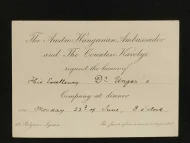 The Austro Hungarian Ambassador
and The Countess Karolyi
request the honour of
His Excellency Dr Ungar's
Company at dinner
on Monday 23rd of June, 8 o'clock
Belgrave Square